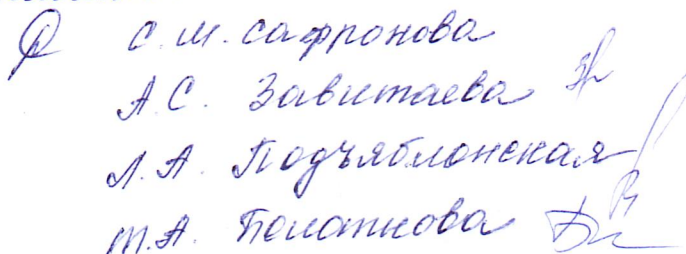 С.М. Сафронова
А.С. Завитаева
Л.А. Подъяблонская
Т.А.